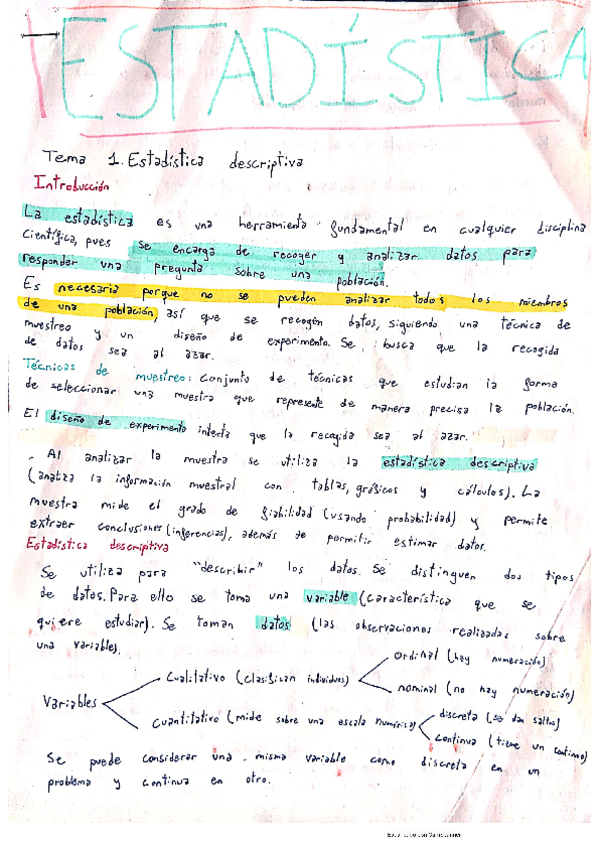 ESTADÍSTICA
Tema 1. Estadística descriptiva
Introducción
La estadística es una herramienta fundamental en cualquier disciplina
científica, pues se encarga de recoger y analizar datos para
responder una pregunta sobre una población.
Es necesaria porque no se pueden analizar todos los miembros
de una población, así que se recogen datos, siguiendo una técnica de
muestreo y un diseño de experimento. Se busca que la recogida
de datos sea al azar.
Técnicas de muestreo: conjunto de técnicas que estudian la forma
de seleccionar una muestra que represente de manera precisa la población.
El diseño de experimento intenta que la recogida sea al azar.
. Al analizar la muestra se utiliza la estadística descriptiva
(analiza la información muestral con tablas, gráficos y cálculos). La
muestra mide el grado de fiabilidad (usando probabilidad) y permite
extraer conclusiones (inferencias), además de permitir estimar datos.
Estadística descriptiva
Se utiliza para "describir" los datos. Se distinguen dos tipos
de datos. Para ello se toma una variable (característica que se
quiere estudiar). Se toman datos (las observaciones realizadas sobre
una variable).
Variables
Cualitativo (clasifican individuos)
ordinal (hay numeración)
nominal (no hay numeración)
Cuantitativo (mide sobre una escala numérica)
discreta (se dan saltos)
continua (tiene un continuo)
Se puede considerar una misma variable como discreta en un
problema y continua en otro.